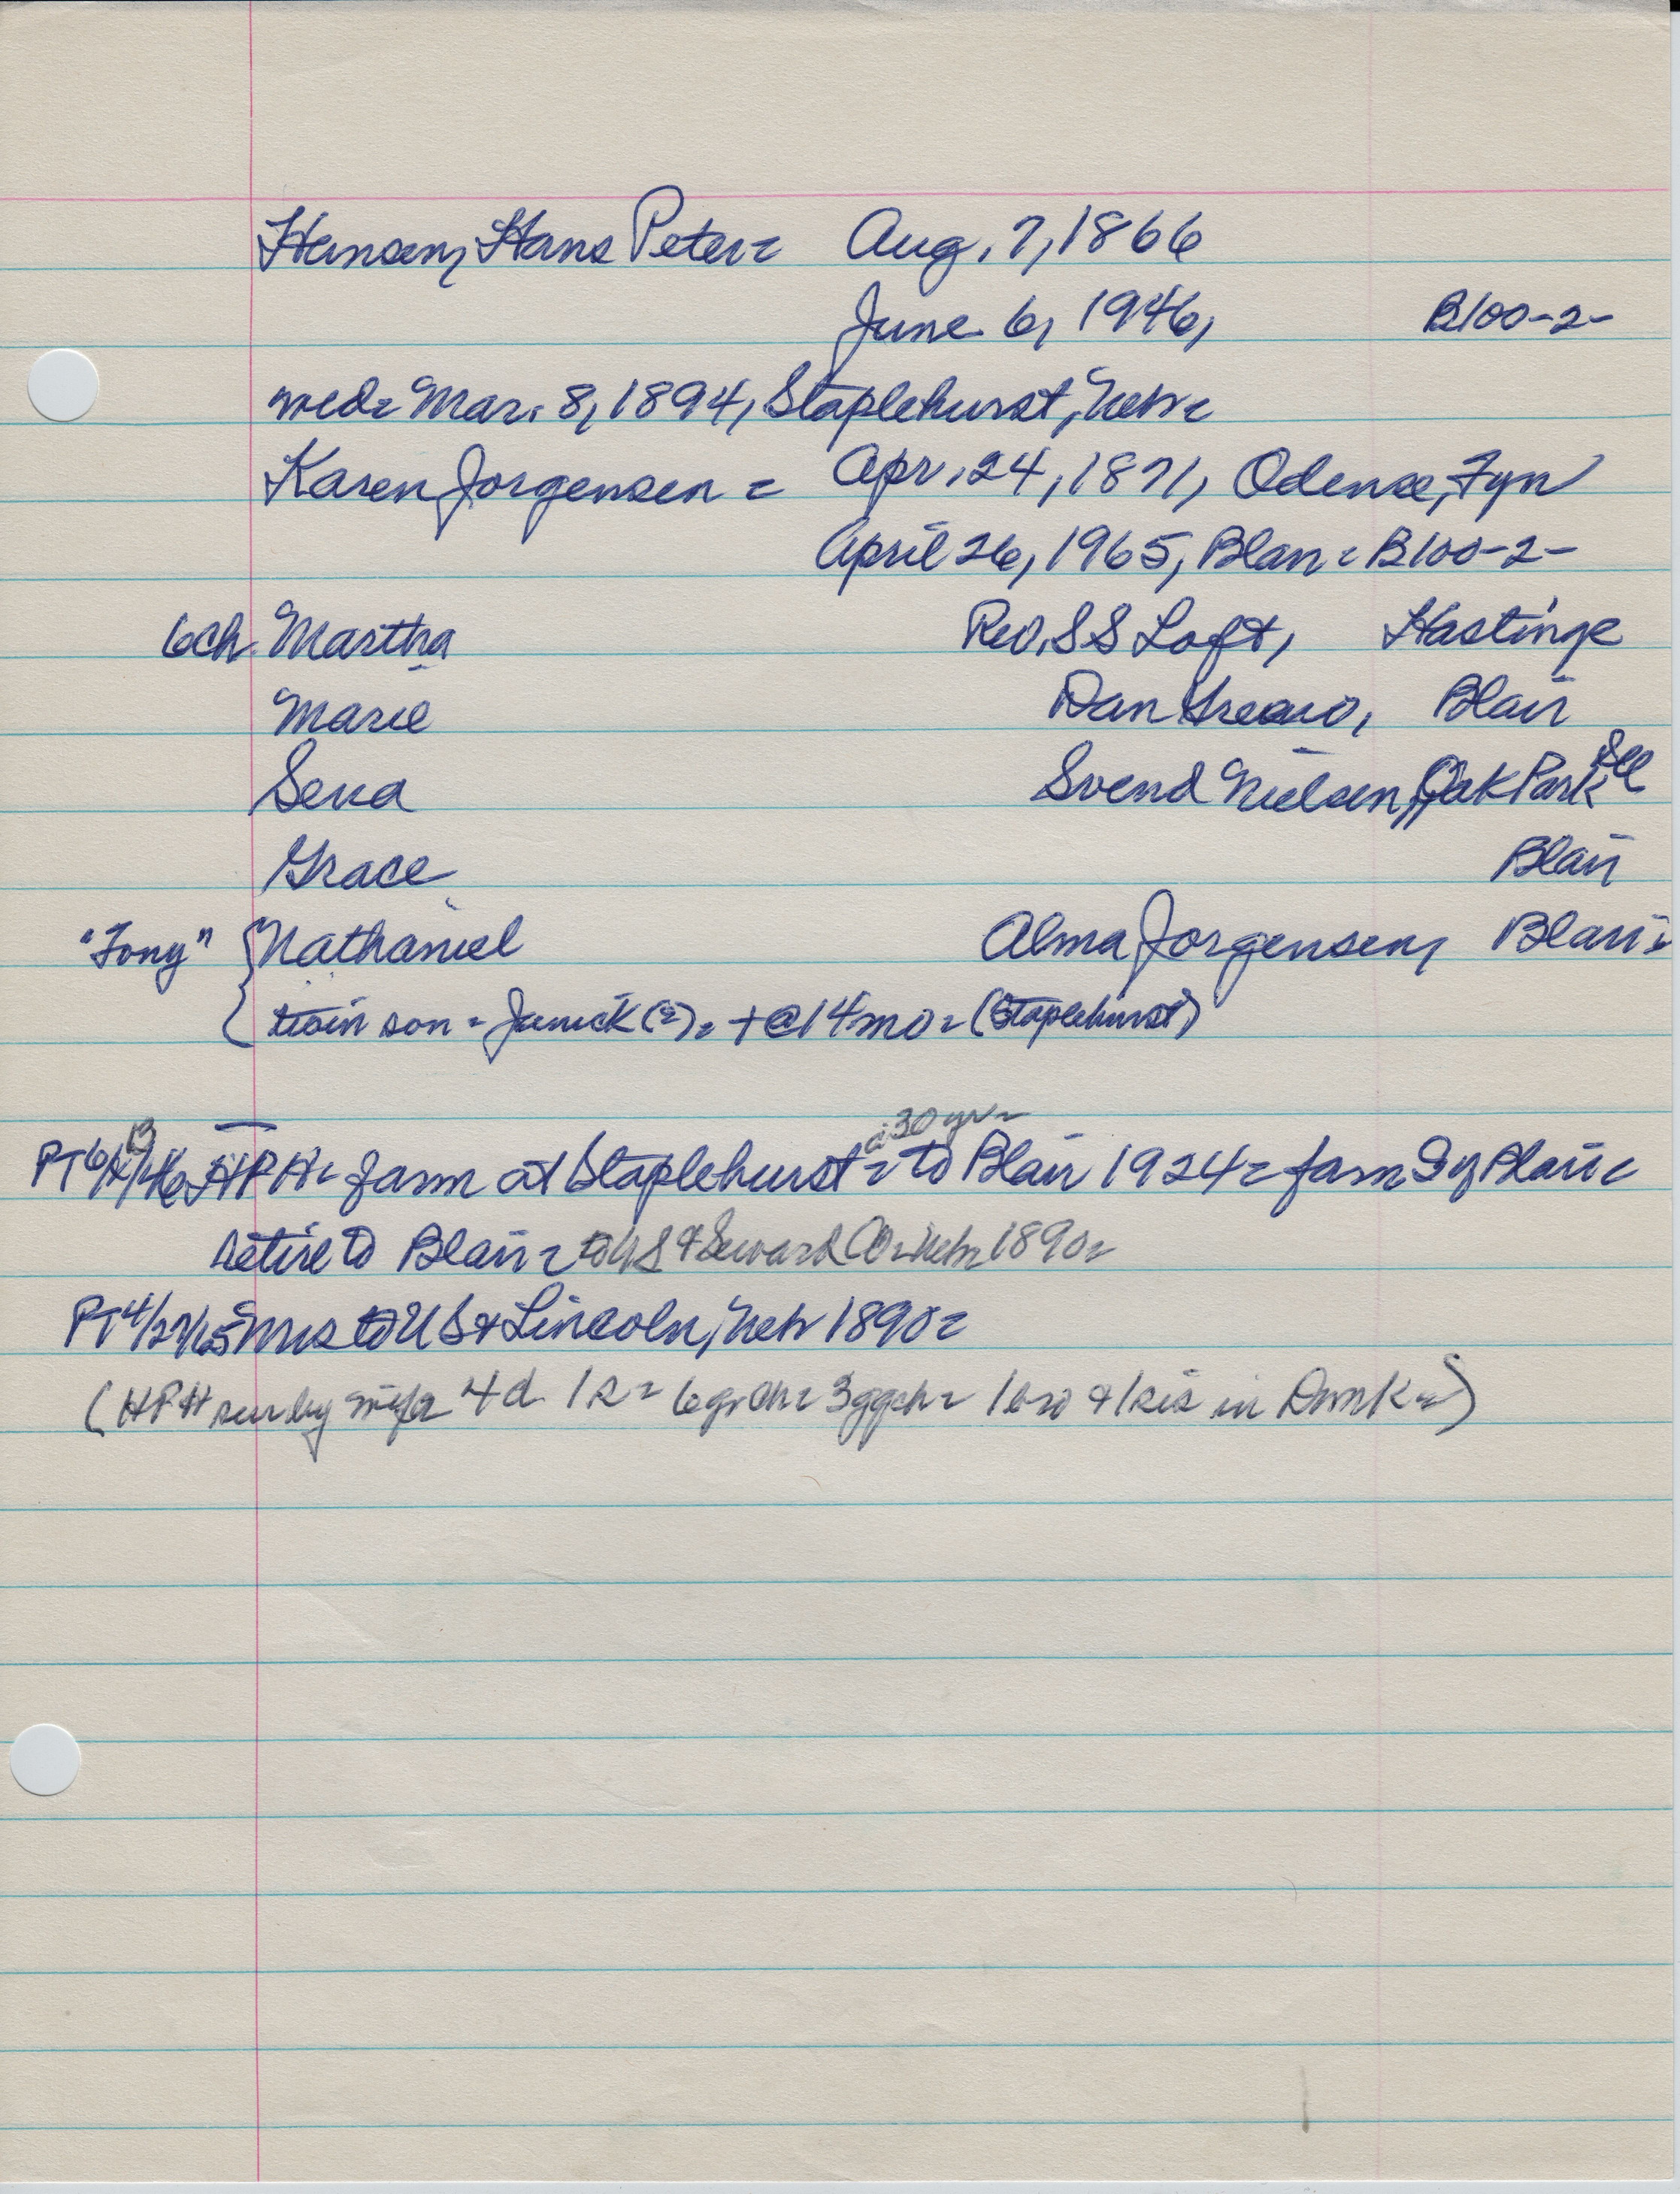 Hansen, Hans Peter= Aug. 7, 1866
June 6, 1946, B100-2-
wed= Mar. 8, 1894, Staplehurst, Nebr=
Karen Jorgensen = Apr. 24, 1871, Odense, Fyn
April 26, 1965, Blair = B100-2-
6ch. Martha Rev. S S Loft, Hastings
Marie Dan, Blair
Sena Svend Nielsen, Oak Park Ill
Grace Blair
"Tony" { Nathaniel Alma Jorgensen, Blair=
{ twin son = (?) = + @ 14 mo = (Staplehurst)
à 30 yr=
PT 6/13/46 HPH= farm at Staplehurst = to Blair 1924 = farm Blair=
retire to Blair = to US & Seward Co= Nebr 1890=
PT 4/27/65 Mrs to US & Lincoln, Nebr 1890=
(HPH sur by wife 4 d 1 s = 6 gr ch= 3 ggch= 1 bro & 1 sis in Dnmk=)